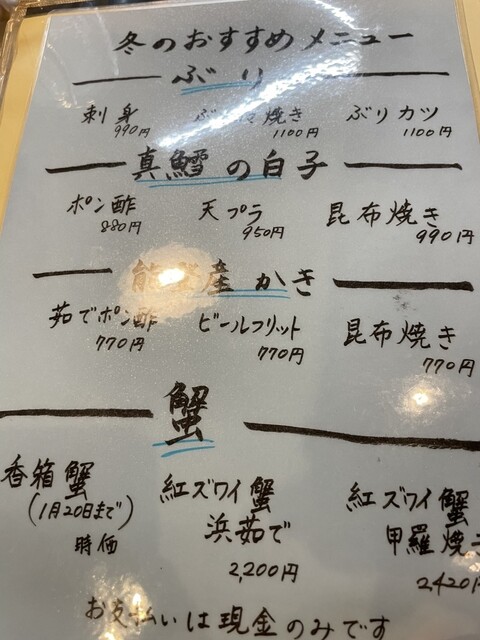 冬のおすすめメニュー
ぶり
刺身 焼き ぶりカツ
990円 1100円 1100円
真鱈の白子
ポン酢 天プラ 昆布焼き
880円 950円 990円
能登産かき
茹でポン酢 ビールフリット 昆布焼き
770円 770円 770円
蟹
香箱蟹 紅ズワイ蟹 紅ズワイ蟹
(1月20日まで) 浜茹で 甲羅焼き
時価 2,200円 2,420円
お支払いは現金のみです